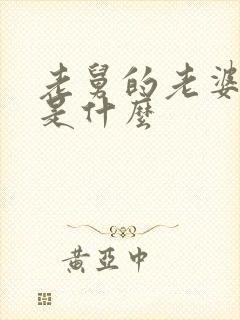 老舅的老婆
是什麼
黃亞中